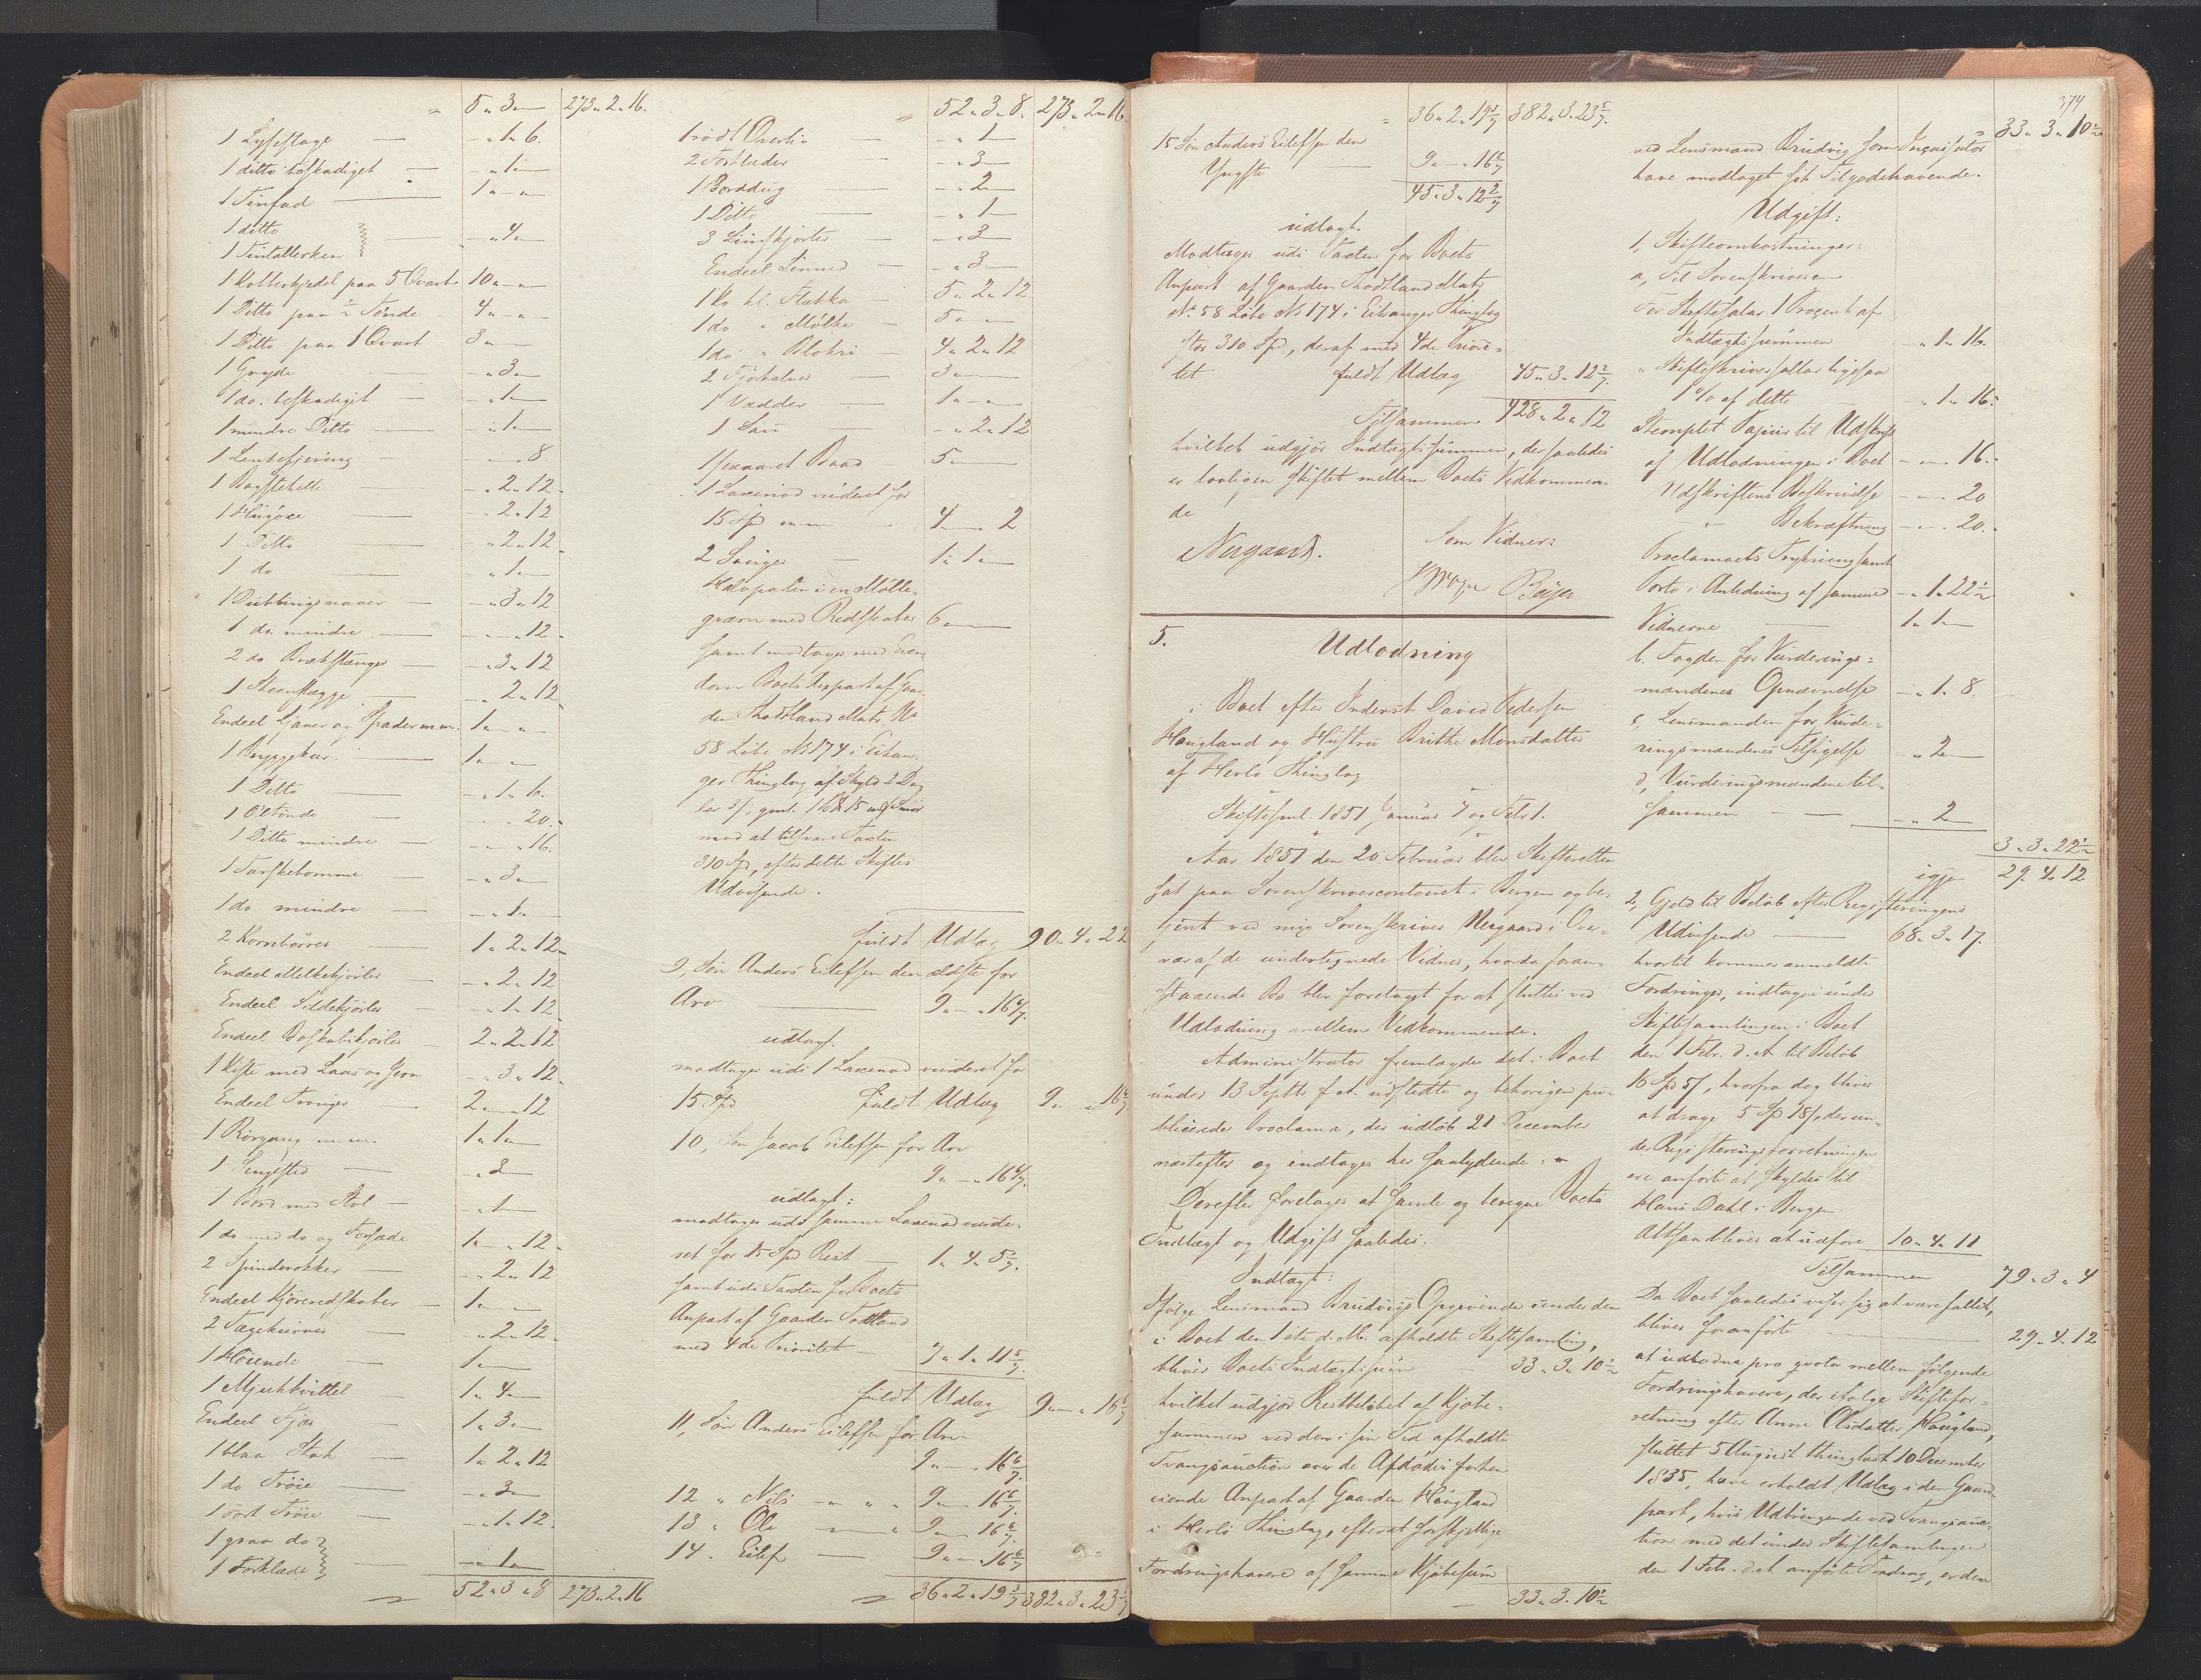 5 " 3 " — 273 " 2 " 16.
1 Lysestage — " 1 " 6.
1 ditto beskadiget — " 1 " —
1 Tinfad — 1 " — "
1 ditto
1 Tintallerken — " 4 " —
1 Kobberkjedel paa 5 Qvart 10 " — "
1 Ditto paa ½ Tønde 4 " — "
1 Ditto paa 1 Qvart 3 " —
1 Gryde — " 3 " —
1 do. beskadiget — " 1 " —
1 mindre Ditto — " 1 " —
1 — " 8
1 Bagstehelle — " 2 " 12
1 Hugøxe — " 2 " 12
1 Ditto — " 2 " 12
1 do — " 1 " —
1 — " 3 " 12
1 do. mindre — " — " 12
2 do Brækstænger — " 3 " 12
1 Steenslægge — " 2 " 12
Endeel Ljaaer og Spader m.m. 1 " — "
1 Bryggekar 1 " — "
1 Ditto — " 1 " 6.
1 Øltønde — " — " 20.
1 Ditto mindre — " — " 16.
1 — " 3 " —
1 do mindre — " 1 " —
2 Kornbører 1 " 2 " 12
Endeel Melkekjørler — " 2 " 12
Endeel Sildekjørler — " 1 " 12
Endeel Boskabskjørler 2 " 2 " 12
1 Kiste med Laas og Jern — " 3 " 12
Endeel 2 " — " 12
1 m.m. 1 " 1 " —
1 Sengested — " 3
1 Bord med Stol — " 1
1 do med do og Forsæde 1 " — " 12
2 Spinderokker — " 2 " 12
Endeel Kjøreredskaber 1 " —
2 — " 2 " 12
1 Høiende 1 " —
1 1 " 4 " —
Endeel Fjær 1 " 3 " —
1 blaa Stak 1 " 2 " 12
1 do Trøie — " 3 " —
1 sort Trøie — " 1 " 12
1 graa do
1 Forklæde — " 1 " —
52 " 3 " 8 273 " 2 " 16
52 " 3 " 8. 273 " 2 " 16.
1 rødt Overliv — " 1
2 Forklæder — " 3 —
1 Borddug — " 2 —
1 Ditto — " 1
3 Liinskjorter — " 3
Endeel Linned — " 3 —
1 Ko kl. Flekka 5 " 2 " 12
1 do " Mølke 5 " — "
1 do " Blokri 4 " 2 " 12
2 3 " —
1 Vædder 1 " — "
1 Sau — " 2 " 12
1 sexaaret Baad 5 " —
1 Laxenod vurderet for
15 Spd m.m. 4 " — " 2
2 Senger 1 " 1 " —
Halvparten i en Mølle-
qværn med Redskaber 6 " —
samt modtages med Eien-
dom Boets Anpart af Gaar-
den Matr. No
58 Løbe No 174 i Eikan-
ger Thinglag af Skyld 2 Da-
ler
mod at tilsvare Taxten
310 Spd, efter dette Skiftes
Udvisende.
fuldt Udlæg 90 " 4 " 22
9, Søn Anders Eilefsen den ældste for
Arv 9 " — " 16 6/7.
udlagt.
modtager udi 1 Laxenod vurderet for
15 Spd fuldt Udlæg 9 " — " 16 6/7
10, Søn Jacob Eilefsen for Arv
9 " — " 16 6/7.
udlagt:
modtager udi samme Laxenod vurde-
ret for 15 Spd Rest 1 " 4 " 5 1/7.
samt udi Taxten for Boets
Anpart af Gaarden
med 4de Prioritet 7 " 1 " 11 5/7.
fuldt Udlæg 9 " — " 16 6/7
11, Søn Anders Eilefsen for Arv
9 " — " 16 6/7.
12 " Nils — " " 9 " — 16 6/7.
13 " Ole — " 9 " — 16 6/7.
14 " Eilef — 9 " — " 16 6/7
36 " 2 " 19 3/7 382 " 3 " 23 5/7
374
36 " 2 " 19 3/7 382 " 3 " 23 5/7.
15 Søn Anders Eilefsen den
Yngste 9 " — " 16 6/7
45 " 3 " 12 2/7
udlagt.
Modtager udi Taxten for Boets
Anpart af Gaarden Matr
No 58 Løbe No 174 i Eikanger Thinglag
stor 310 Spd, deraf med 4de Priori-
tet fuldt Udlæg 45 " 3 " 12 2/7.
Tilsammen 428 " 2 " 12
hvilket udgjør Indtægtssummen, der saaledes
er lovligen skiftet mellem Boets Vedkommen-
de
Nergaard. Som Vidner:
Bøyer
5. Udlodning
i Boet efter Inderst David Pedersen
Haugland og Hustru Brithe Monsdatter
af Herlø Thinglag
Skiftesml. 1851 Januar 7 og Febr 1.
Aar 1851 den 20 Februar blev Skifteretten
sat paa Sorenskrivercontoiret i Bergen og be-
tjent ved mig Sorenskriver Nergaard i Over-
vær af de undertegnede Vidner, hvorda foran-
staaende Bo blev foretaget for at sluttes ved
Udlodning mellem Vedkommende.
Administrator fremlagde det i Boet
under 13 Septbr f. A. udstedte og behørigen pu-
blicerede Proclama, der udløb 21 December
næstefter og indtages her saalydende: "
Derefter foretoges at samle og beregne Boets
Indtægt og Udgift saaledes.
Indtægt:
Ifølge Lensmand Brudvigs Opgivende under den
i Boet den 1ste d. M. afholdte Skiftesamling,
bliver Boets Indtægtssum 33 " 3 " 10 ½
hvilket udgjør Restbeløbet af Kjøbe-
summen ved den i sin Tid afholdte
Tvangsauction over de Afdødes forhen
eiende Anpart af Gaarden Haugland
i Herlø Thinglag, efterat forskjellige
Fordringshavere af samme Kjøbesum
33 " 3 " 10 ½
33 " 3 " 10 ½
ved Lensmand Brudvig som Incassator
have modtaget sit Tilgodehavende.
Udgift:
1, Skifteomkostninger:
a, Til Sorenskriveren
For Skiftesalær 1 Procent af
Indtægtssummen — " 1 " 16.
" Skifteskriversallær ligesaa
1 % af dette — " 1 " 16.
Stemplet Papiir til Udskrift
af Udlodningen i Boet — " — " 16.
Udskriftens Beskrivelse — " — " 20
" Bekræftning — " — " 20.
Proclamaets Trykning samt
Porto i Anledning af samme — " 1 " 22 ½
Vidnerne 1 " 1 " —
b. Fogden for Vurderings-
mændenes Opnævnelse — " 1 " 8.
c, Lensmanden for Vurde-
ringsmændenes Tilsigelse " 2 —
d, Vurderingsmændene til-
sammen — " 2 —
3 " 3 " 22 ½
igjen 29 " 4 " 12
2, Gjeld til Beløb efter Registreringens
Udvisende 68 " 3 " 17.
hvortil kommer anmeldte
Fordringer, indtagne under
Skiftesamlingen i Boet
den 1 Febr. d. A. til Beløb
16 Spd 5 ß, hvorfra dog bliver
at drage 5 Sp 18 ß, der un-
der Registreringsforretningen
ere anførte at skyldes til
Hans Dahl i Bergen.
Altsaa bliver at udføre 10 " 4 " 11
Tilsammen 79 " 3 " 4
Da Boet saaledes viser sig at være fallit,
bliver foranførte 29 " 4 " 12
at udlodne pro qvota mellem følgende
Fordringshavere, der ifølge Skiftefor-
retning efter Anne Olsdatter Haugland,
sluttet 5 August thinglæst 10 December
1835, have erholdt Udlæg i den Gaard-
part, hvis Udbringende ved Tvangsauc-
tion med det under Skiftesamlingen
den 1 Febr. d. A anførte Fradrag, er den